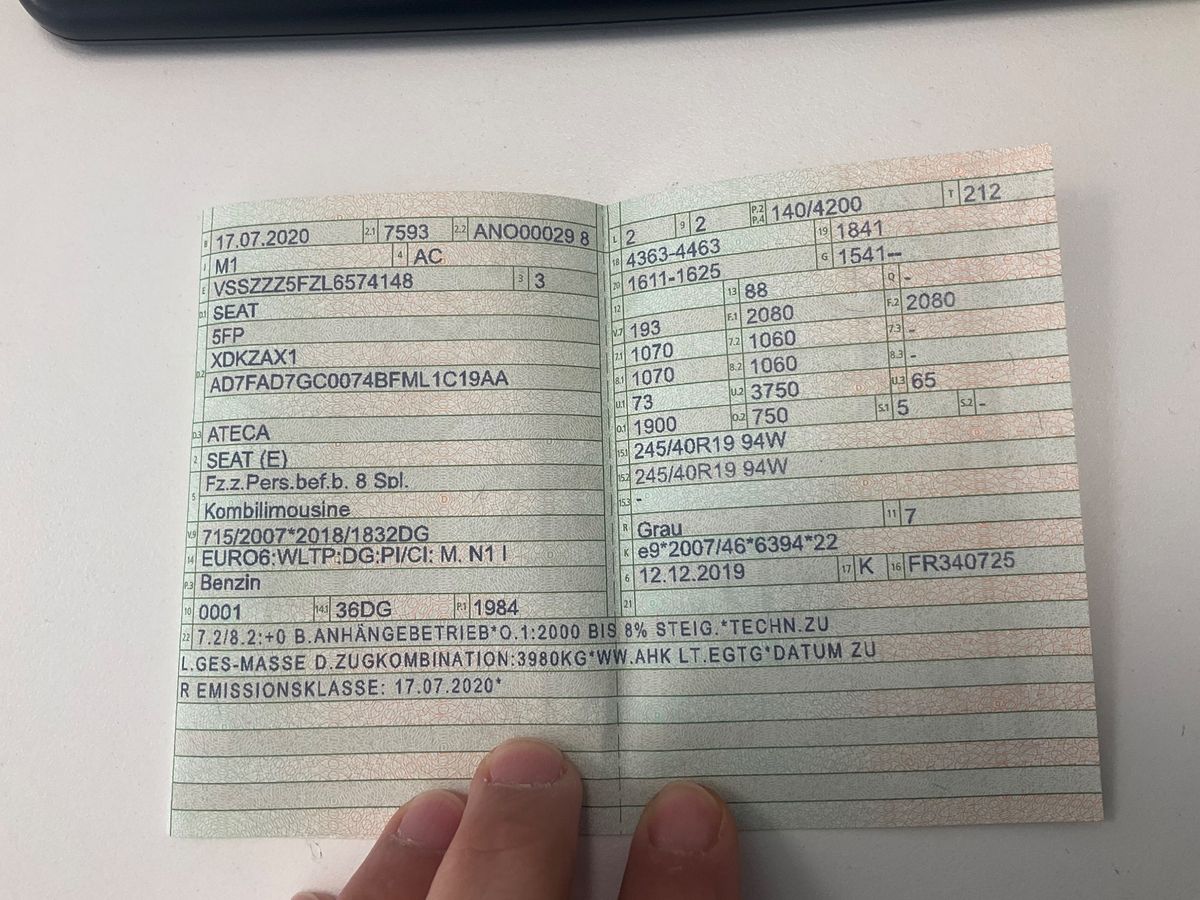 B 17.07.2020 2.1 7593 2.2 ANO00029 8
J M1 4 AC
E VSSZZZ5FZL6574148 3 3
D.1 SEAT
5FP
XDKZAX1
D.2 AD7FAD7GC0074BFML1C19AA
D.3 ATECA
2 SEAT (E)
5 Fz.z.Pers.bef.b. 8 Spl.
Kombilimousine
V.9 715/2007*2018/1832DG
14 EURO6:WLTP:DG:PI/CI: M, N1 I
P.3 Benzin
10 0001 14.1 36DG P.1 1984
L 2 9 2 P.2 P.4 140/4200 T 212
18 4363-4463 19 1841
20 1611-1625 G 1541--
12 13 88 Q -
V.7 193 F.1 2080 F.2 2080
7.1 1070 7.2 1060 7.3 -
8.1 1070 8.2 1060 8.3 -
U.1 73 U.2 3750 U.3 65
O.1 1900 O.2 750 S.1 5 S.2 -
15.1 245/40R19 94W
15.2 245/40R19 94W
15.3 -
R Grau 11 7
K e9*2007/46*6394*22
6 12.12.2019 17 K 16 FR340725
21
22 7.2/8.2:+0 B.ANHÄNGEBETRIEB*O.1:2000 BIS 8% STEIG.*TECHN.ZU
L.GES-MASSE D.ZUGKOMBINATION:3980KG*WW.AHK LT.EGTG*DATUM ZU
R EMISSIONSKLASSE: 17.07.2020*